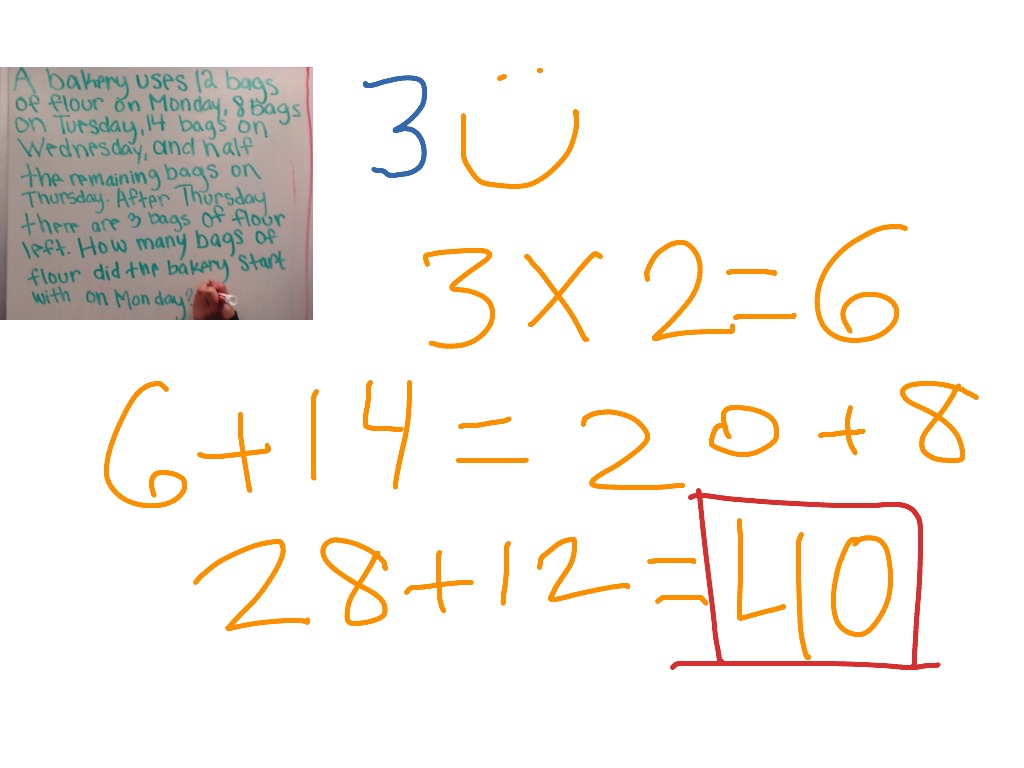 A bakery uses 12 bags
of flour on Monday, 8 bags
on Tuesday, 14 bags on
Wednesday, and half
the remaining bags on
Thursday. After Thursday
there are 3 bags of flour
left. How many bags of
flour did the bakery start
with on Monday?
3
3 × 2 = 6
6 + 14 = 20 + 8
28 + 12 = 40